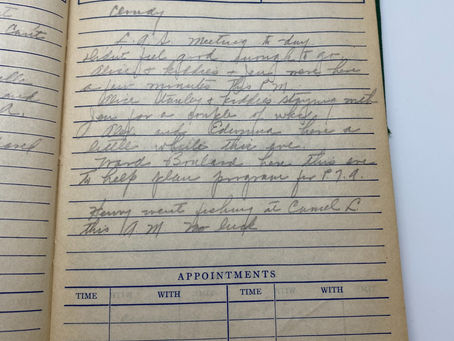 Cant
and
Cloudy
L. A. S. Meeting to-day.
Didnt feel good enough to go.
Alice + kiddies + Jens were here
a few minutes this P.M.
Alice Stanley + kiddies staying with
Jens for a couple of wks.
and Edwina here a
little while this eve.
Ward here this eve
to help plan program for P.T.A.
Henry went fishing at Camel L.
this A M no luck
APPOINTMENTS
TIME WITH TIME WITH